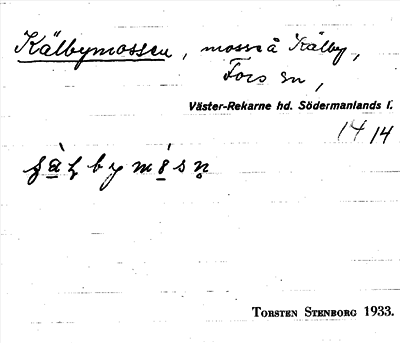 Kälbymossen, mosse å Kälby,
Fors sn,
Väster-Rekarne hd. Södermanlands l.
14 14
Torsten Stenborg 1933.